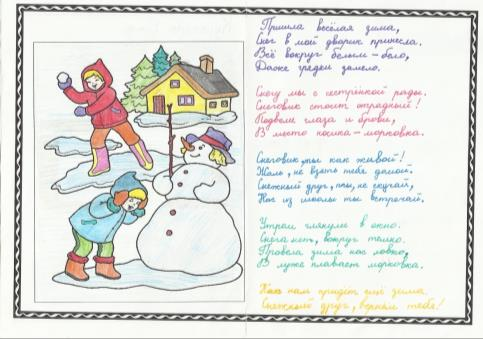 Пришла весёлая зима,
Снег в мой дворик принесла.
Всё вокруг белым-бело,
Даже грядки замело.
Снегу мы с сестрёнкой рады.
Снеговик стоит отрадный!
Подвели глаза и брови,
В место носика-морковка.
Снеговик, ты как живой!
Жаль, не взять тебя домой.
Снежный друг, ты, не скучай,
Нас из школы ты встречай.
Утром глянули в окно.
Снега нет, вокруг тепло.
Провела зима нас ловко,
В луже плавает морковка.
к нам придёт ещё зима.
Снежный друг, вернём тебя!